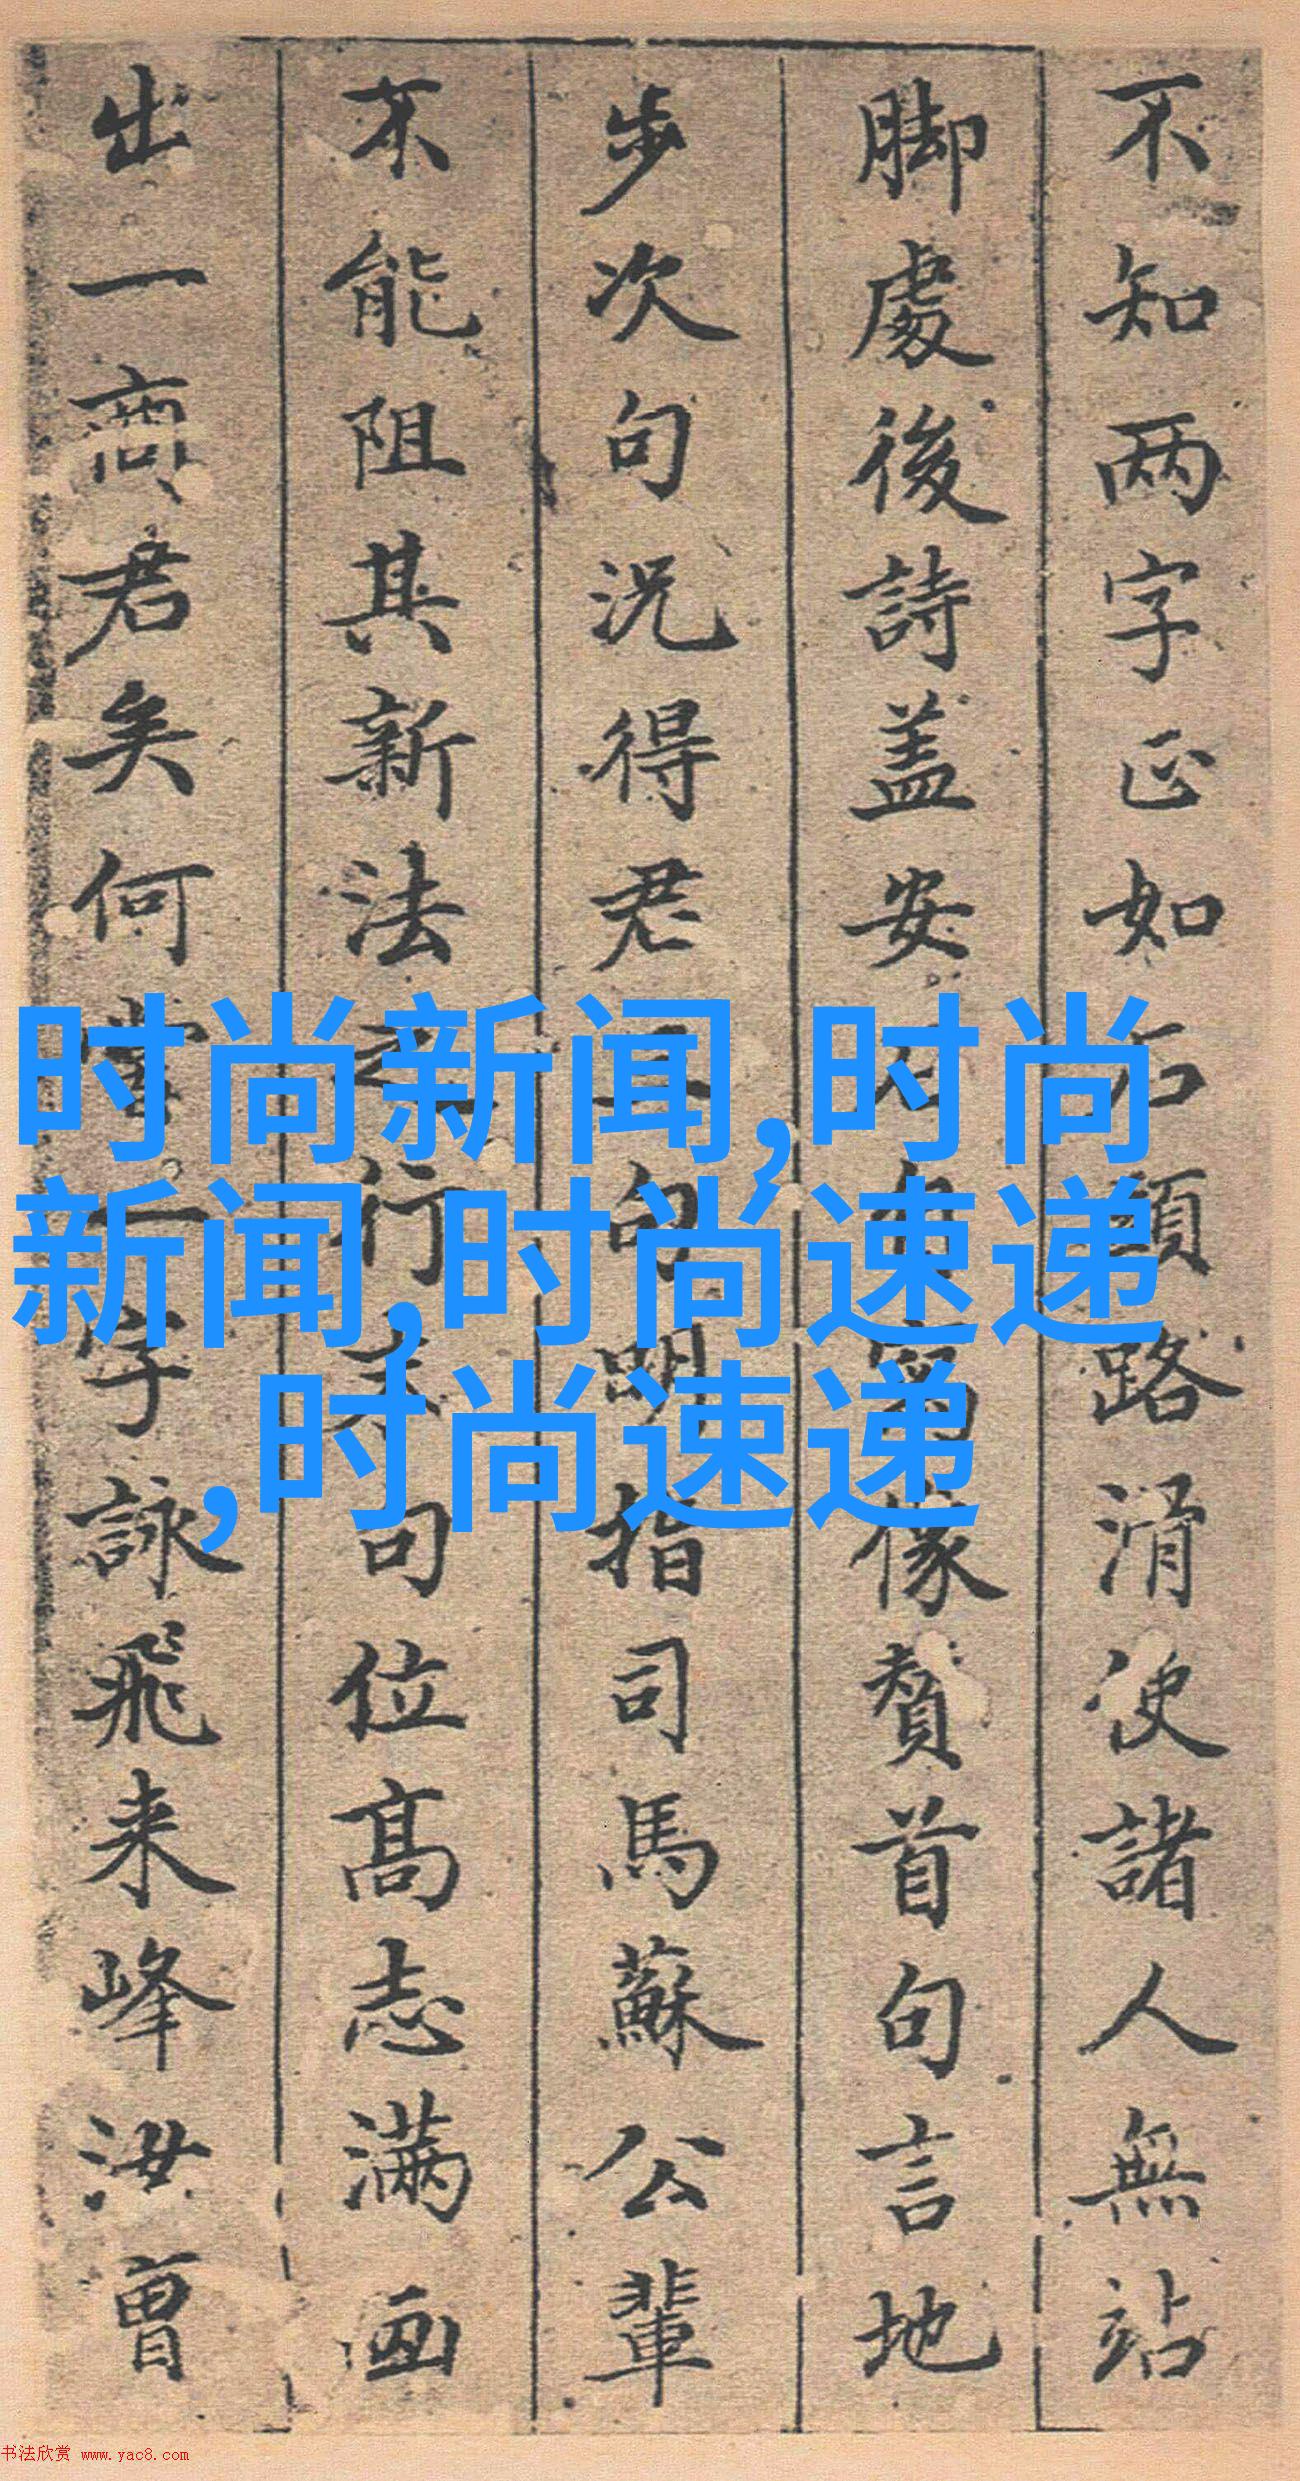 不知两字正如石頭路滑使諸人無站
脚處後詩盖安像賛首句言地
步次句況得君句明指司馬蘇公輩
不能阻其新法之行末句位高志满画
出一商君矣何當一字詠飛来峰汝曾
时尚新闻,时尚
新闻,时尚速递
,时尚速递
书法欣赏 www.yac8.com